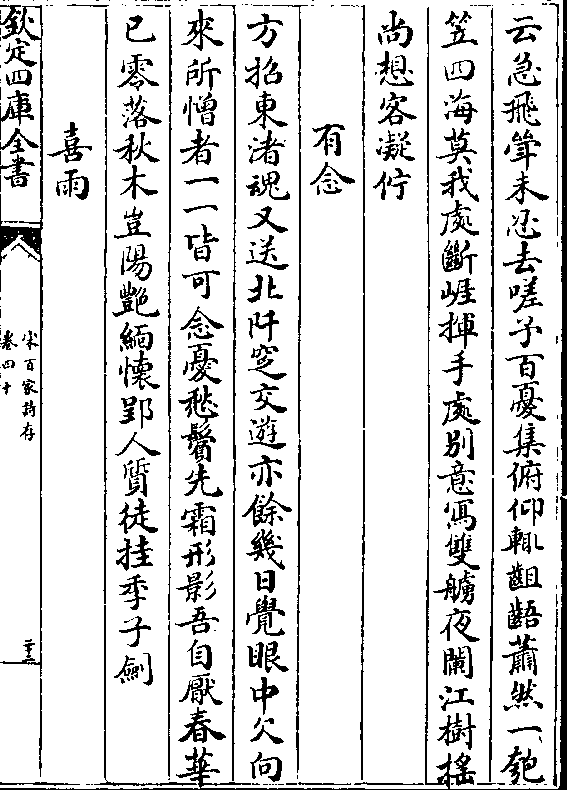 云急飛聳未忍去嗟予百憂集俯仰輒齟齬蕭然一匏
笠四海莫我處斷崕揮手處别意寫雙艣夜闌江樹搖
尚想客凝佇
有念
方招東渚魂又送北阡窆交遊亦餘幾日覺眼中欠向
來所憎者一一皆可念憂愁鬢先霜形影吾自厭春華
已零落秋木豈陽艶緬懷郢人質徒挂季子劍
喜雨
欽定四庫全書
宋百家詩存
卷四十
二十三